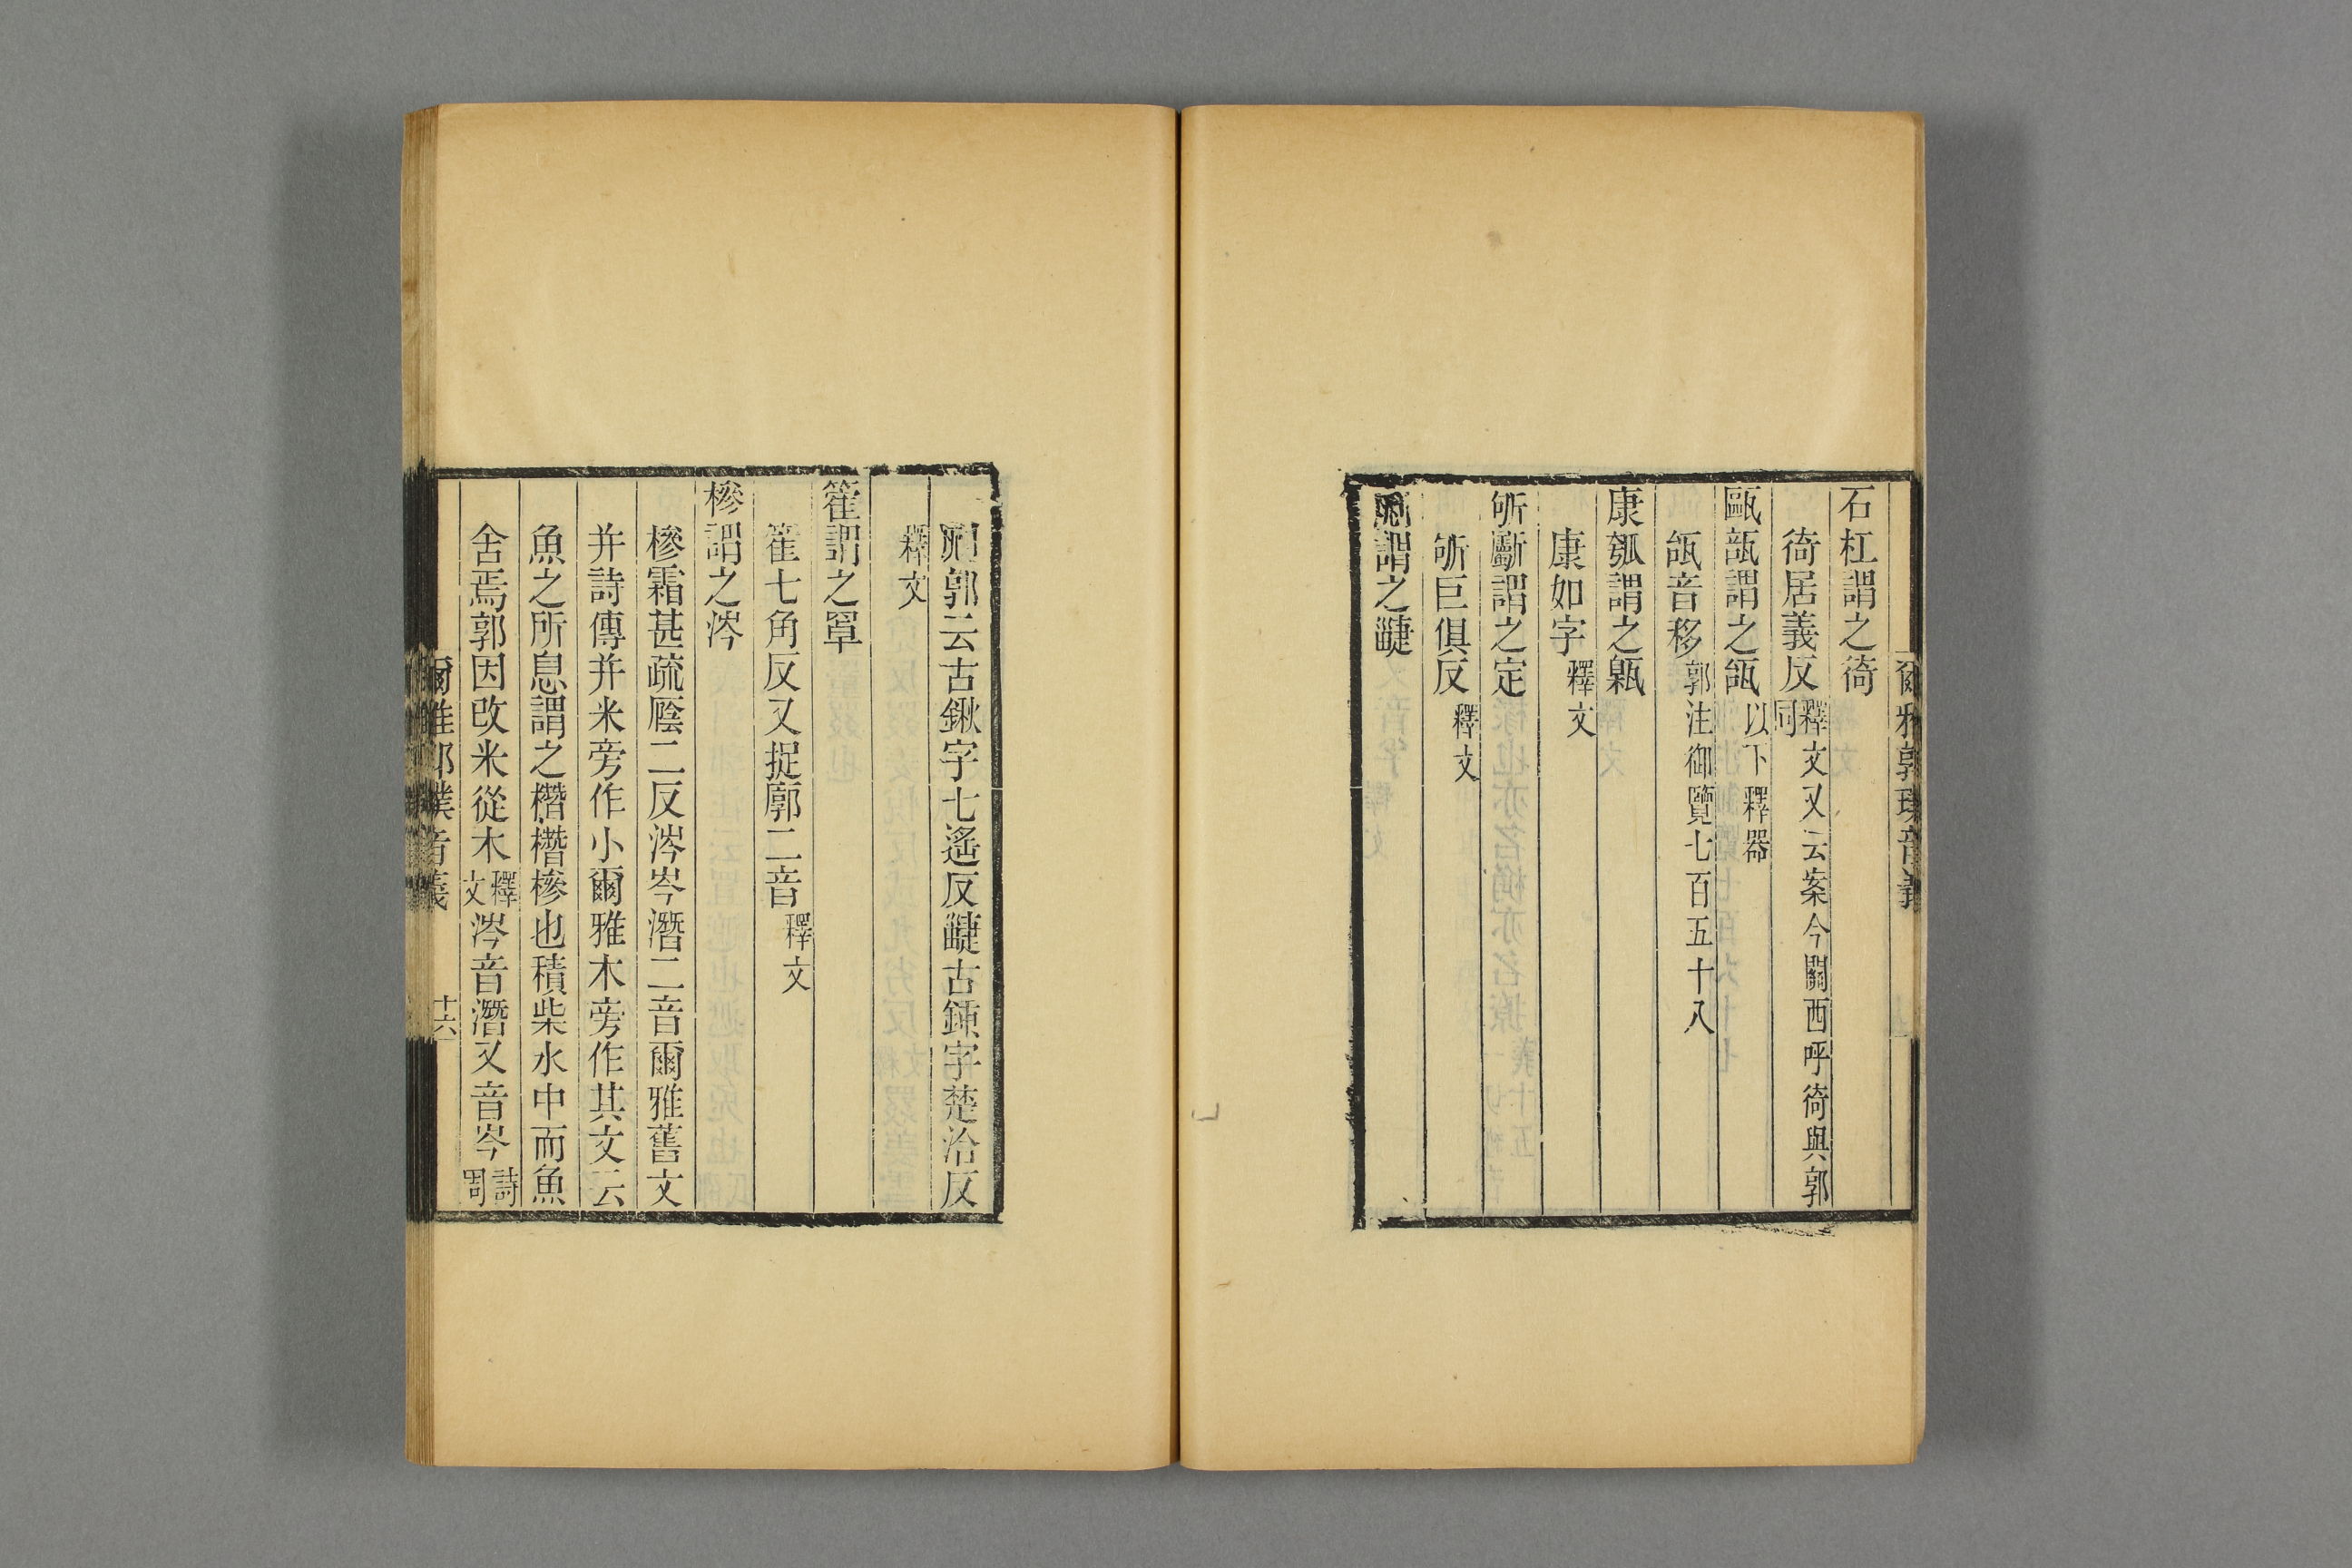 爾雅郭璞音義
石杠謂之徛
徛居義反釋文又云案今關西呼徛與郭同
甌瓿謂之瓵以下釋器
瓵音移郭注御覽七百五十八
康瓠謂之甈
康如字釋文
斪斸謂之定
斪巨俱反釋文
𣂁謂之疀
𣂁郭云古鍬字七遙反疀古鍤字楚洽反
釋文
篧謂之罩
篧七角反又捉廓二音釋文
槮謂之涔
槮霜甚疏廕二反涔岑潛二音爾雅舊文
并詩傳并米旁作小爾雅木旁作其文云
魚之所息謂之橬橬槮也積柴水中而魚
舍焉郭因改米從木釋文涔音潛又音岑詩周
爾雅郭璞音義 十六